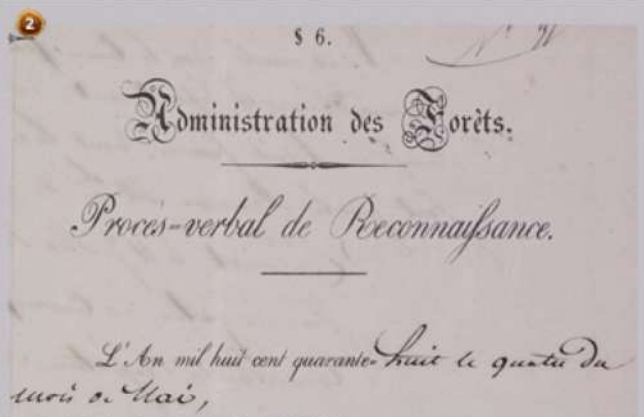 2
§ 6.
N° 91
Administration des Forêts.
Procès-verbal de Reconnaissance.
L'An mil huit cent quarante-huit le quatre du
mois de Mai,